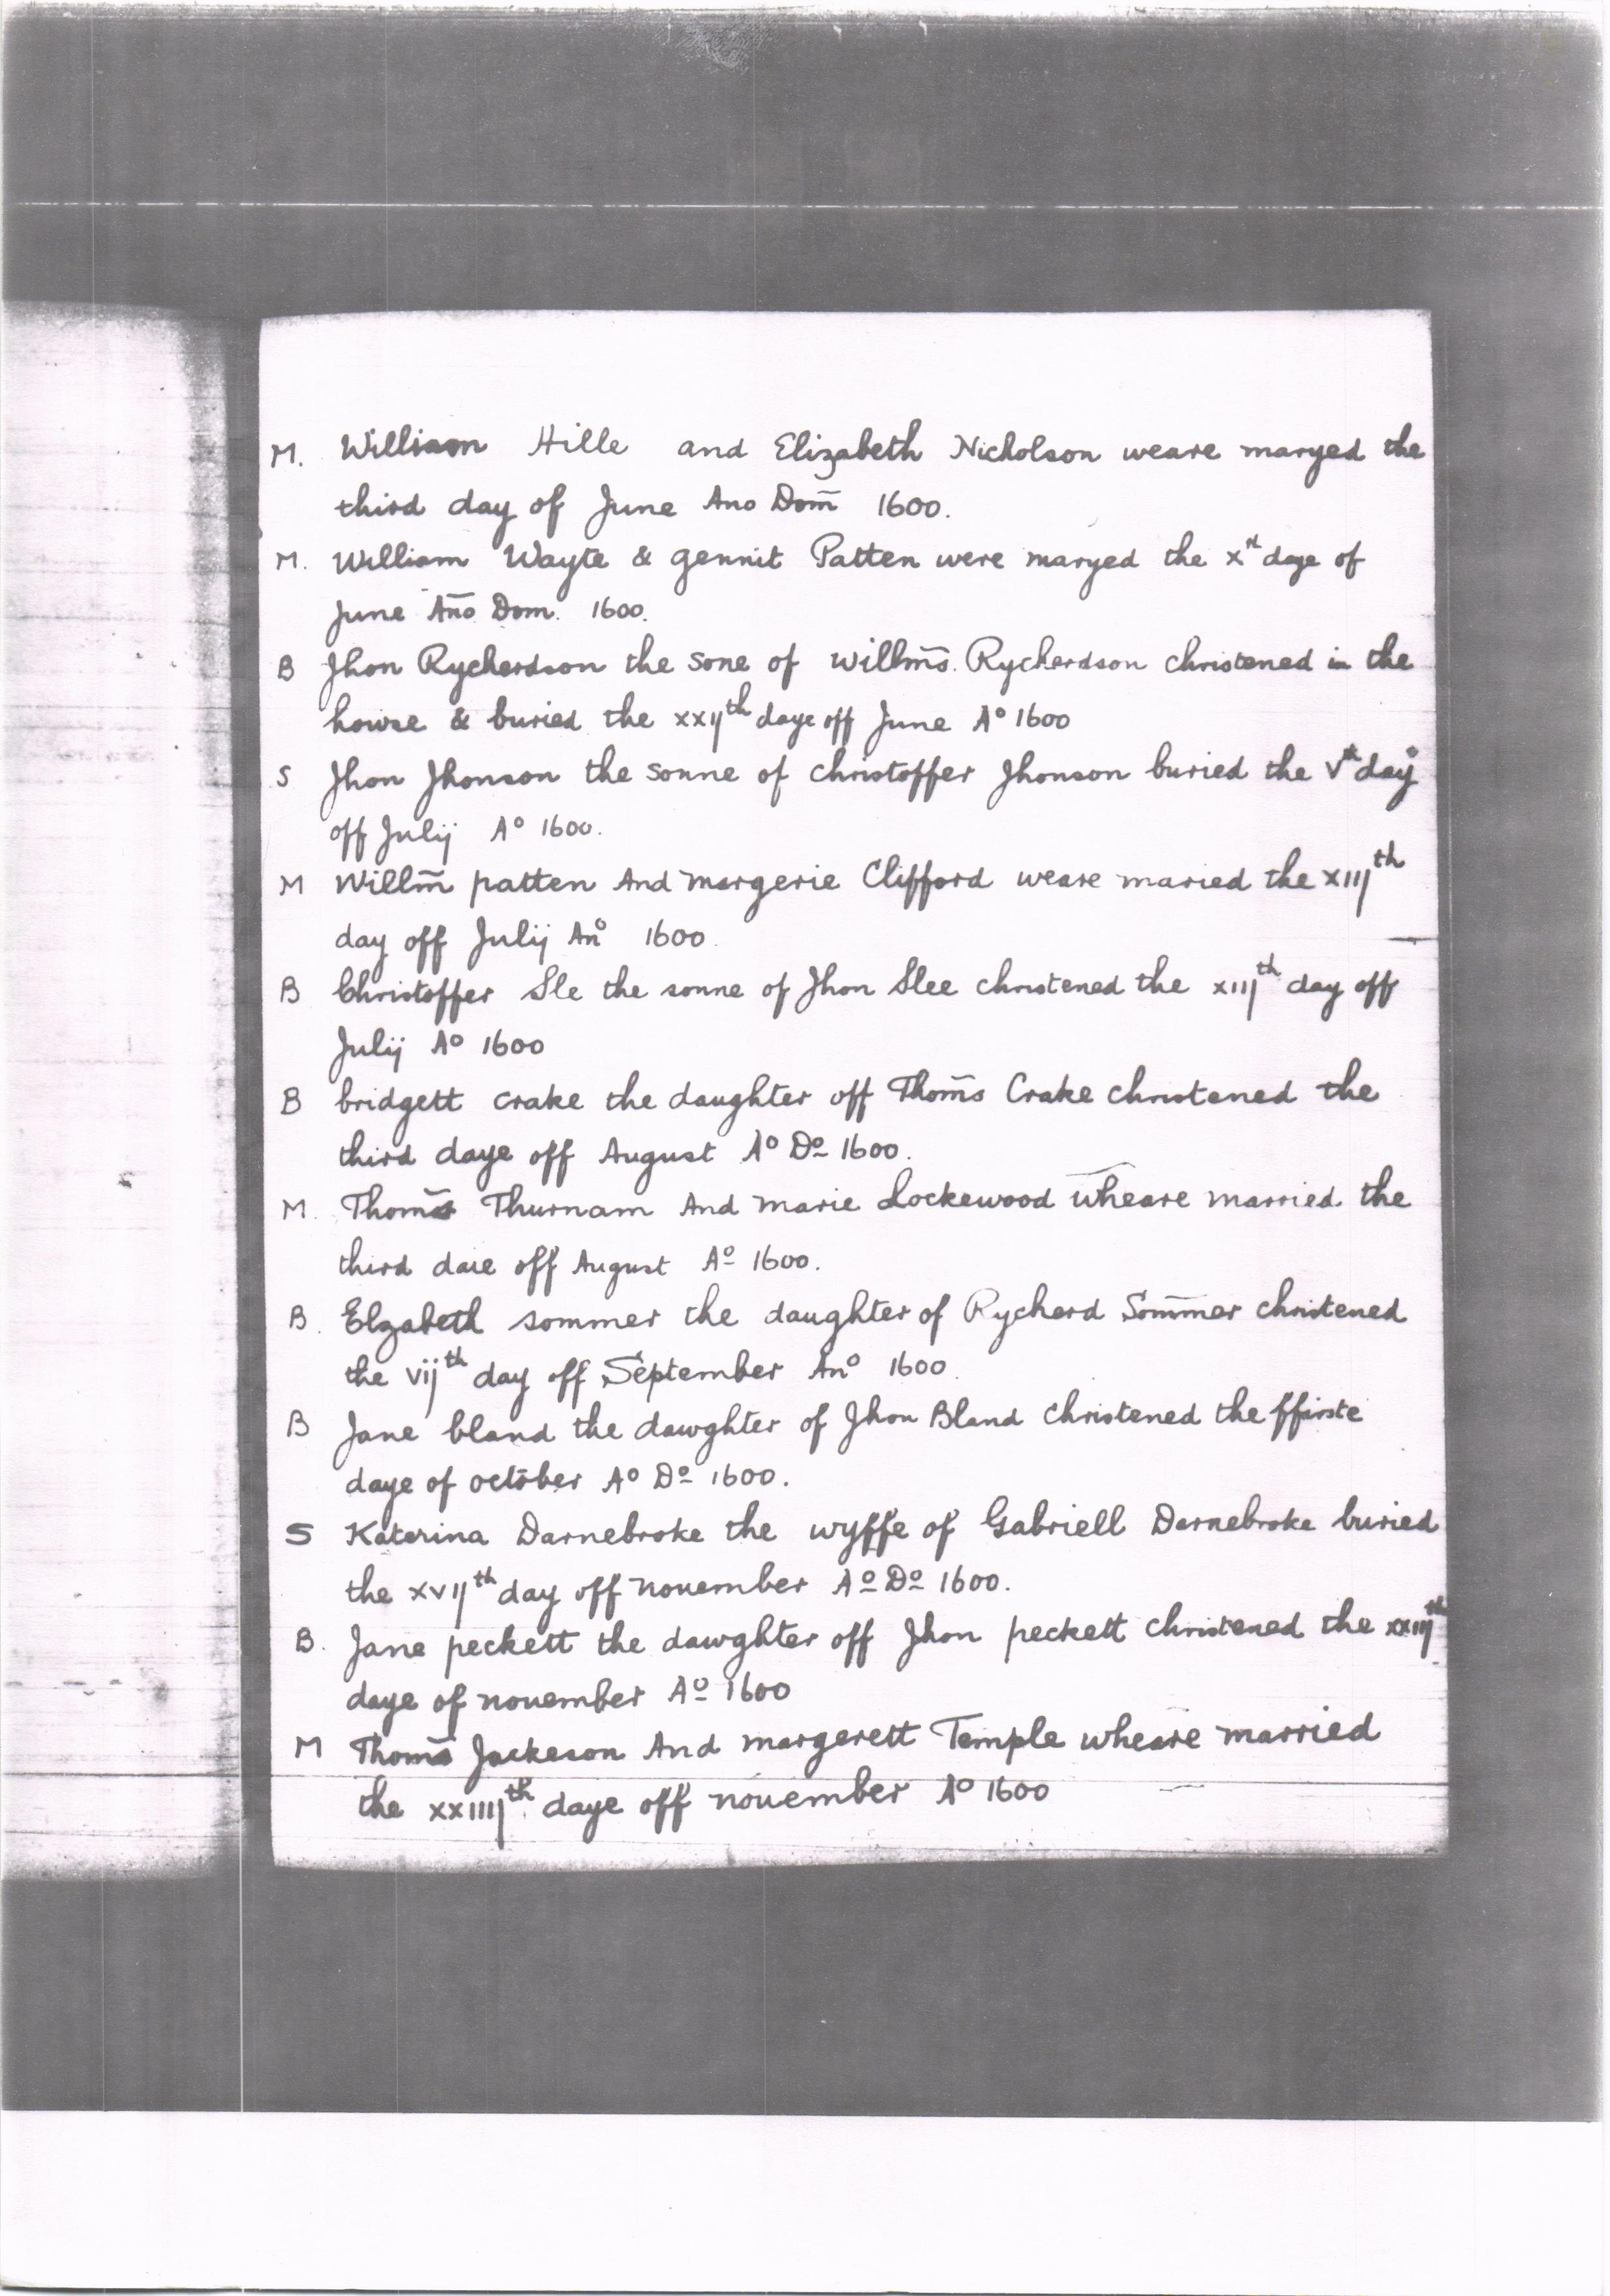 M. William Hille and Elizabeth Nicholson weare maryed the
third day of June Ano Dom̄ 1600.
M. William Wayte & Gennit Patten were maryed the xth daye of
June Año Dom. 1600.
B Jhon Rycherdson the sone of Willm̄s. Rycherdson christened in the
howse & buried the xxijth daye off June Aº 1600
S Jhon Jhonson the sonne of Christoffer Jhonson buried the Vth day
off Julij Aº 1600.
M Willm̄ patten And margerie Clifford weare maried the xiijth
day off Julij Anº 1600.
B Christoffer Sle the sonne of Jhon Slee christened the xiijth day off
Julij Aº 1600
B bridgett crake the daughter off Thom̄s Crake christened the
third daye off August Aº Dº 1600.
M. Thom̄s Thurnam And marie Lockewood wheare married the
third daie off August Aº 1600.
B. Elzabeth sommer the daughter of Rycherd Som̄mer christened
the vijth day off September Anº 1600
B Jane bland the dawghter of Jhon Bland christened the ffirste
daye of october Aº Dº 1600.
S Katerina Darnebroke the wyffe of Gabriell Darnebroke buried
the xvijth day off november Aº Dº 1600.
B. Jane peckett the dawghter off Jhon peckett christened the xxiijth
daye of november Aº 1600
M Thom̄s Jackeson And margerett Temple wheare married
the xxiiijth daye off november Aº 1600